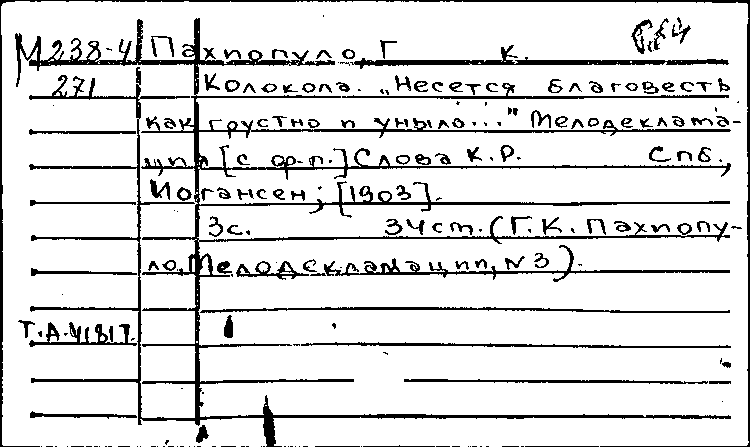 М 238-4 Пахпопуло, Г К.
271 Колокола. „Несется благовесть
как грустно и уныло..." Мелодеклама-
ция [с ф-п.] Слова К.Р. Спб.,
Иогансен; [1903].
3с. 34ст. (Г.К. Пахпопу-
ло, Мелодекламации, N 3).